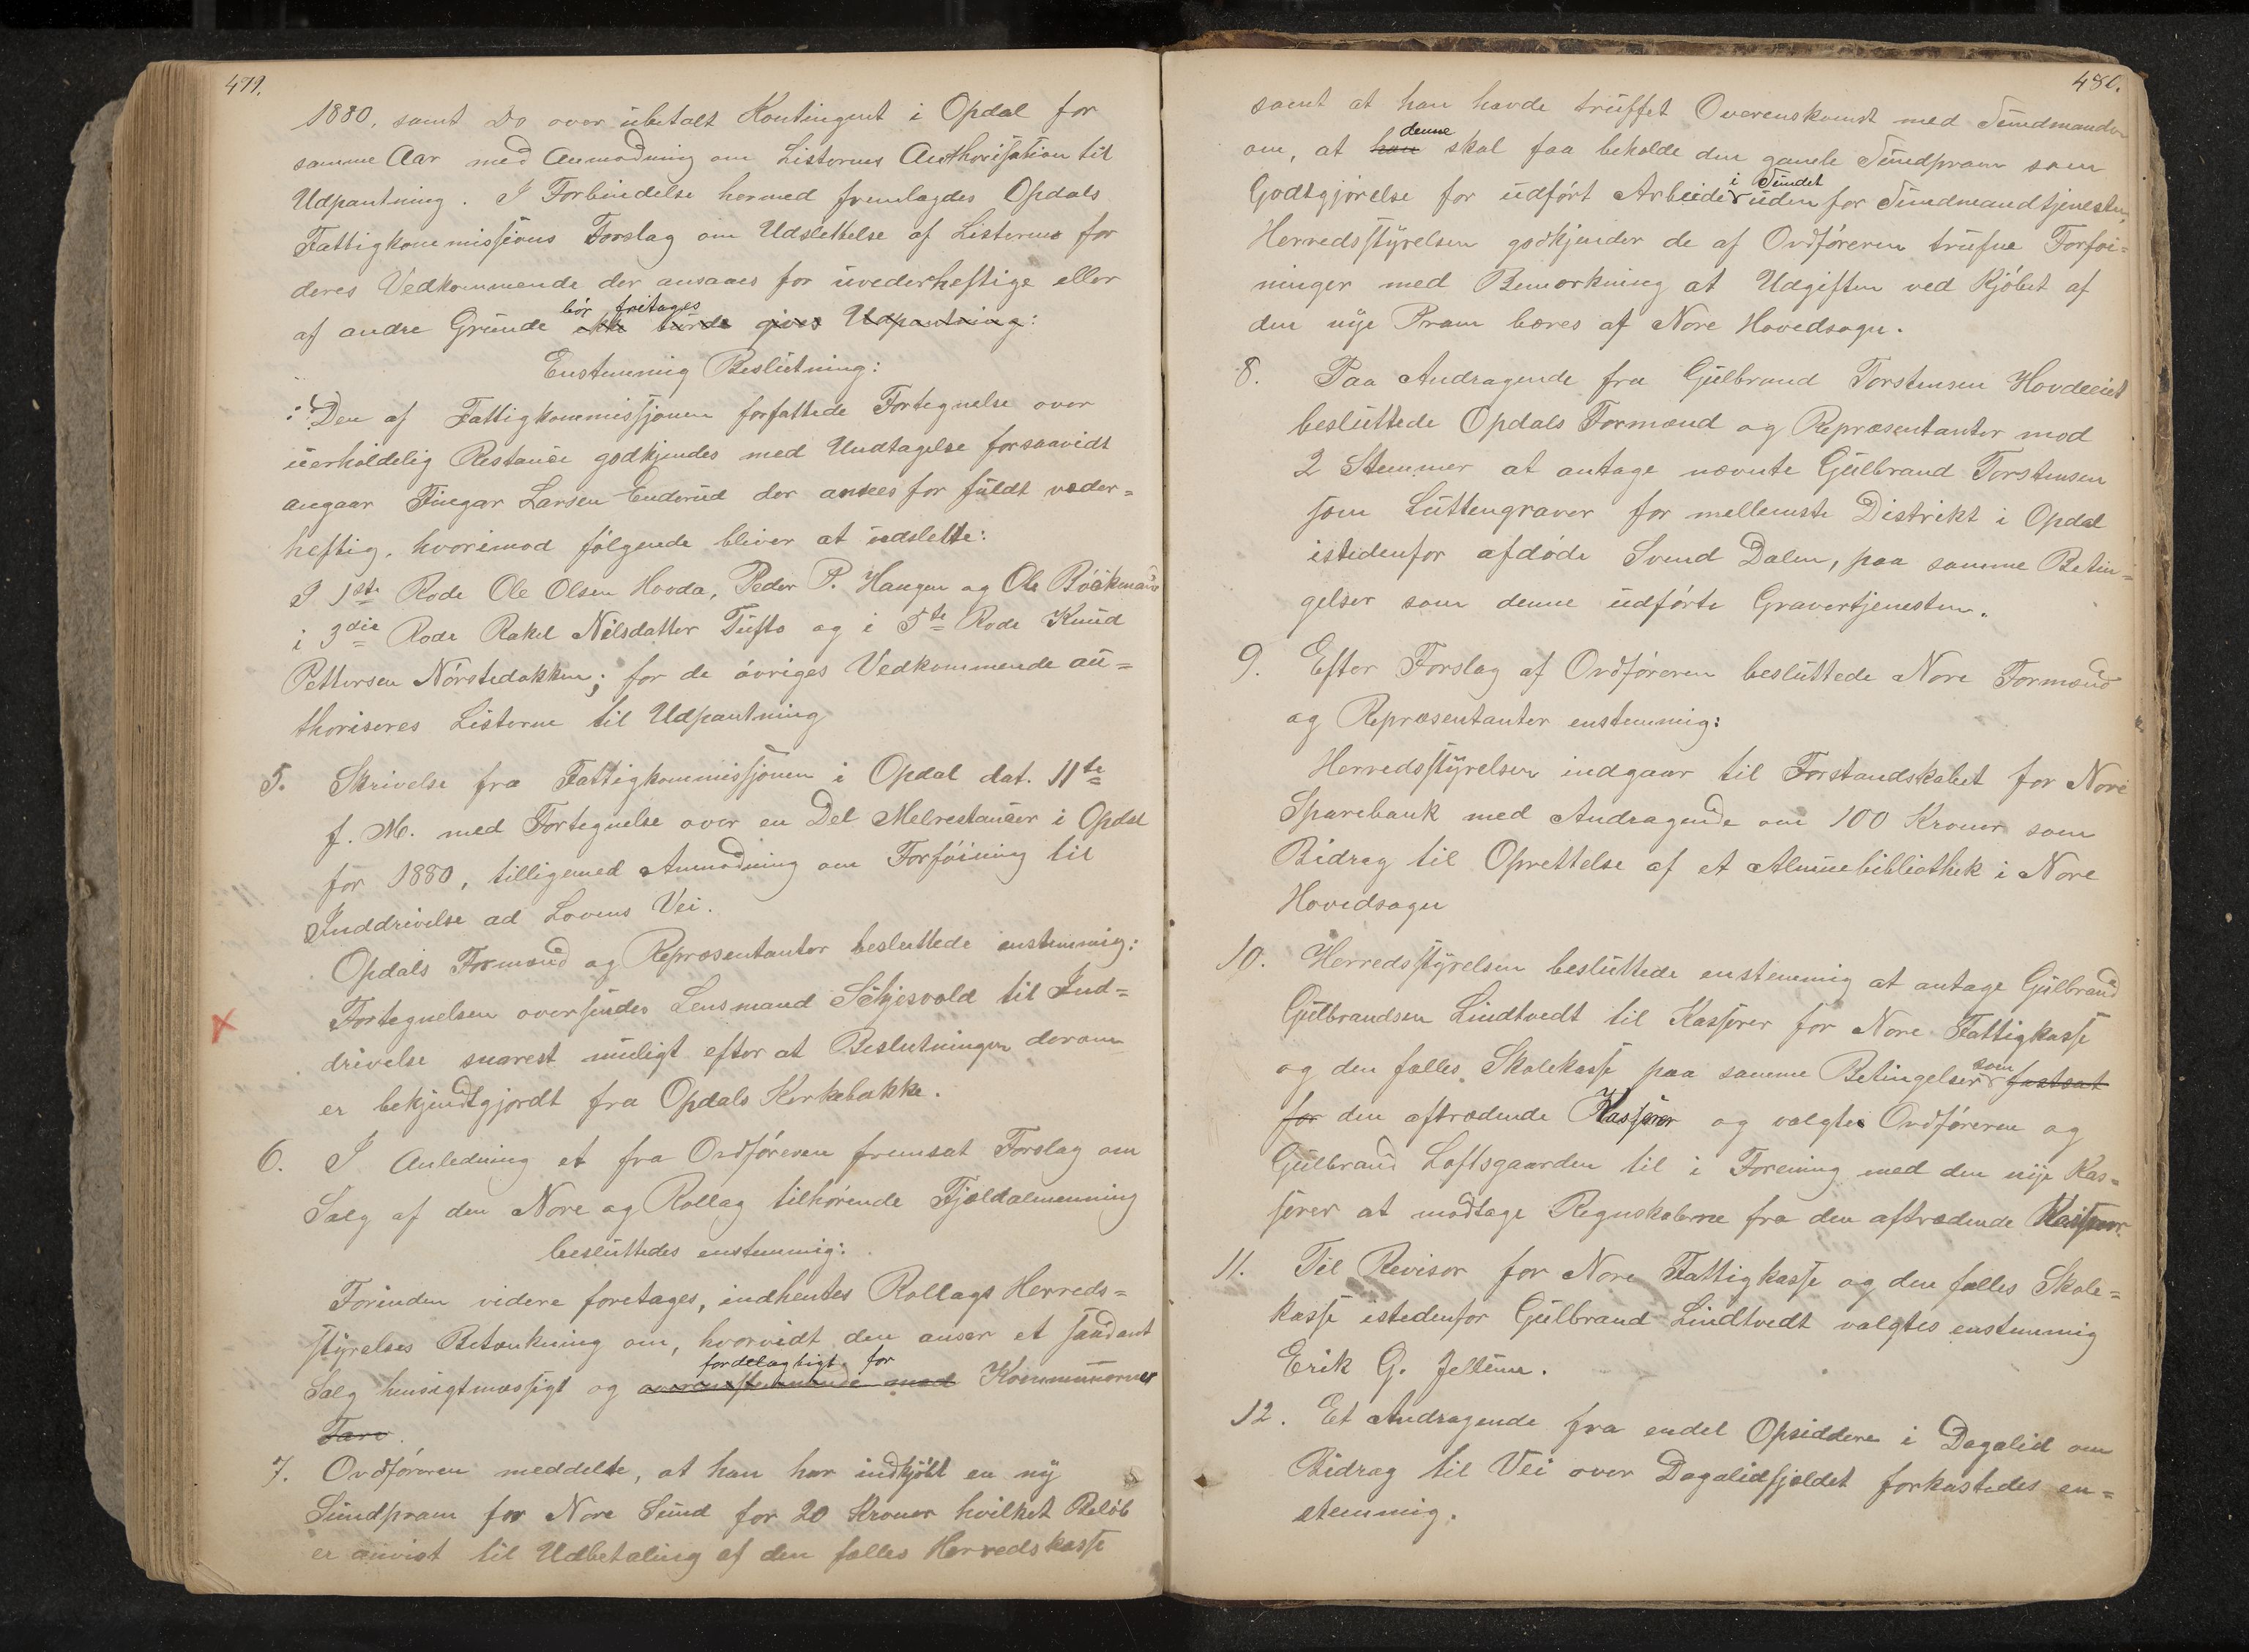 479.
1880, samt Do over ubetalt Kontingent i Opdal for
samme Aar med Anmodning om Listernes Authorisation til
Udpantning. I Forbindelse hermed fremlagdes Opdals
Fattigkommissions Forslag om Udslettelse af Listerne for
deres Vedkommende der ansaaes for uvederheftige eller
bör fritages
af andre Grunde ikke burde gives Udpantning:
Enstemmig Beslutning:
Den af Fattigkommissjonen forfattede Fortegnelse over
uerholdelig Restancer godkjendes med Undtagelse forsaavidt
angaar Fingar Larsen Enderud der ansees for fuldt veder=
heftig, hvorimod fölgende bliver at udslette:
I 1ste Rode Ole Olsen Hovda, Peder P. Haugen og Ole
i 3die Rode Rakel Nilsdatter Tufto og i 5te Rode Knud
Pettersen Nörstedakken; for de övriges Vedkommende au=
thoriseres Listerne til Udpantning
5. Skrivelse fra Fattigkommissjonen i Opdal dat. 11te
f. M. med Fortegnelse over en Del Melrestancer i Opdal
for 1880, tilligemed Anmodning om Forföining til
Inddrivelse ad Lovens Vei.
Opdals Formænd og Repræsentanter besluttede enstemmig:
Fortegnelsen oversendes Lensmand Skjesvold til Ind=
drivelse snarest muligt efter at Beslutningen derom
er bekjendtgjordt fra Opdals Kirkebakke.
6. I Anledning et fra Ordföreren fremsat Forslag om
Salg af den Nore og Rollag tilhörende Fjeldalmenning
besluttedes enstemmig:
Forinden videre foretages, indhentes Rollags Herreds=
styrelses Betænkning om, hvorvidt den anser et saadant
fordelagtigt for
Salg hensigtmæssigt og overensstemmende med Kommunernes
Tarv.
7. Ordföreren meddelte, at han har indkjöbt en ny
Sundpram for Nore Sund for 20 Kroner hvilket Belöb
er anvist til Udbetaling af den fælles Herredskasse
480.
samt at han havde truffet Overenskomst med Sundmanden
denne
om, at han skal faa beholde den gamle Sundpram som
i Sundet
Godtgjörelse for udfört Arbeide udenfor Sundmandtjenesten.
Herredsstyrelsen godkjender de af Ordföreren trufne Forföi=
ninger med Bemærkning at Udgiften ved Kjöbet af
den nye Pram bæres af Nore Hovedsogn.
8. Paa Andragende fra Gulbrand Torstensen Hovdeeiet
besluttede Opdals Formænd og Repræsentanter mod
2 Stemmer at antage nævnte Gulbrand Torstensen
som Luttengraver for mellemste Distrikt i Opdal
istedenfor afdöde Svend Dalen, paa samme Betin=
gelser som denne udförte Gravertjenesten.
9. Efter Forslag af Ordföreren besluttede Nore Formænd
og Repræsentanter enstemmig:
Herredsstyrelsen indgaar til Forstandskabet for Nore
Sparebank med Andragende om 100 Kroner som
Bidrag til Oprettelse af et Almuebibliothek i Nore
Hovedsogn
10. Herredsstyrelsen besluttede enstemmig at antage Gulbrand
Gulbrandsen Lindtvedt til Kasserer for Nore Fattigkasse
som
og den fælles Skolekasse paa samme Betingelser fastsat
for den aftrædende Kasserer og valgtes Ordföreren og
Gulbrand Loftsgaarden til i Forening med den nye Kas=
serer at modtage Regnskaberne fra den aftrædende Kasserer.
11. Til Revisor for Nore Fattigkasse og den fælles Skole=
kasse istedenfor Gulbrand Lindtvedt valgtes enstemmig
Erik G.
12. Et Andragende fra endel Opsiddere i Dagalid om
Bidrag til Vei over Dagalidfjeldet forkastedes en=
stemmig.